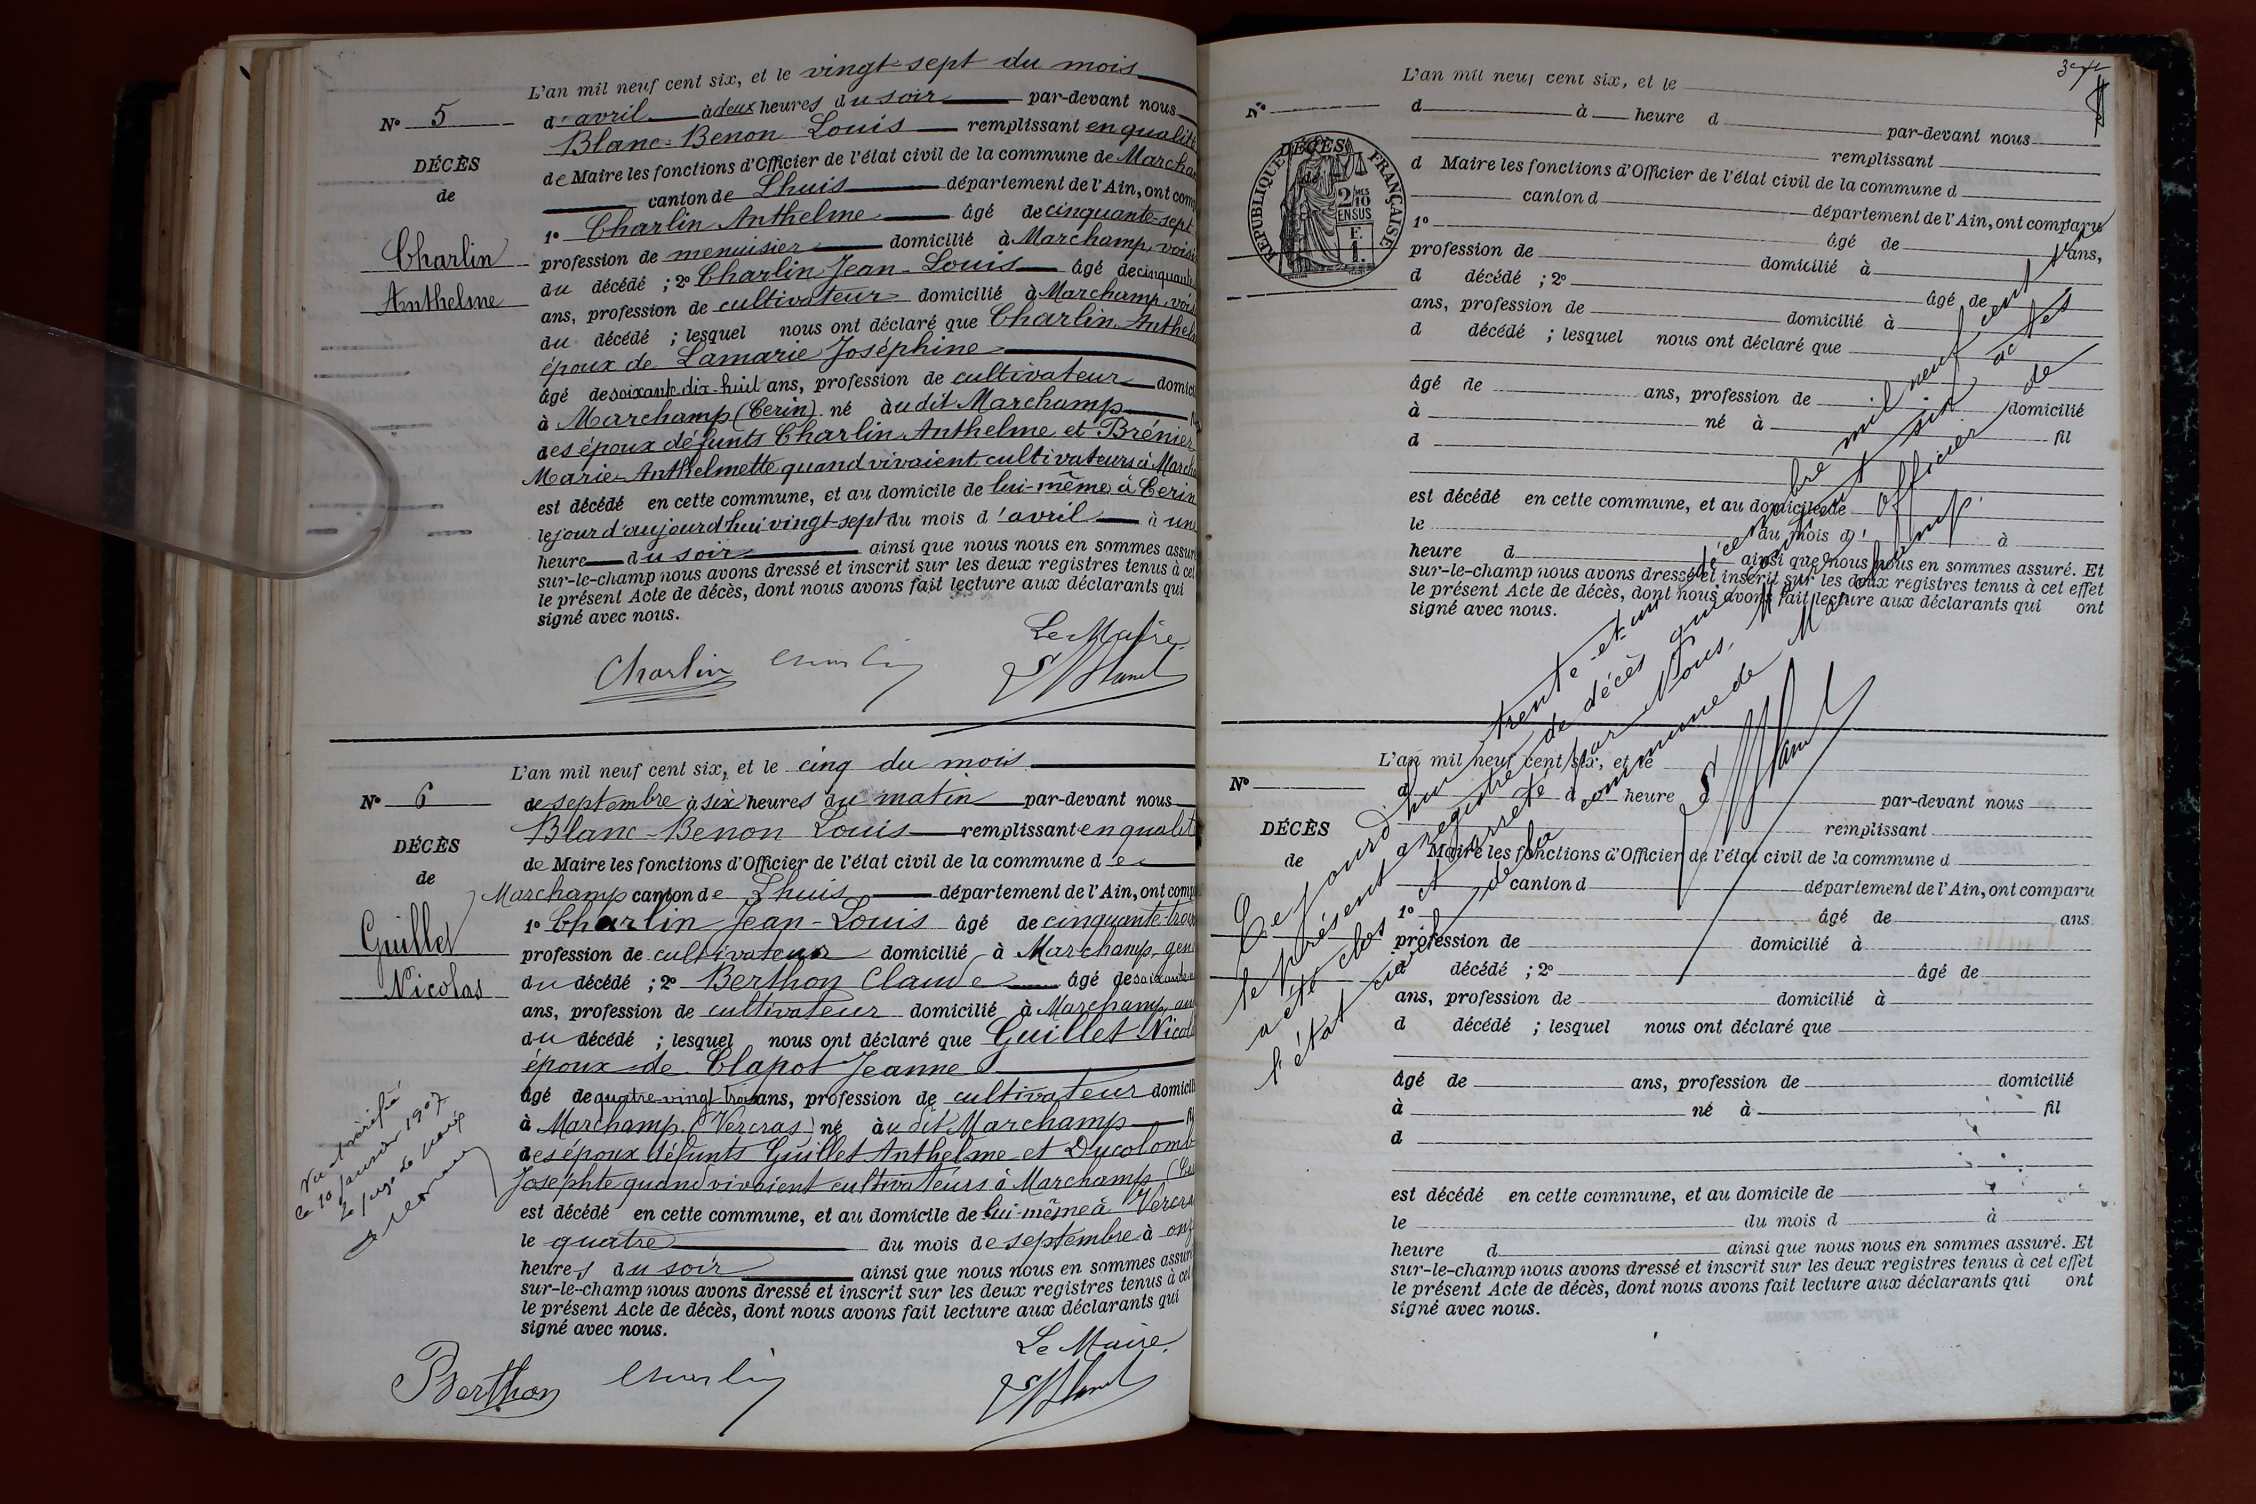 L'an mil neuf cent six, et le vingt-sept du mois
N° 5
d'avril à deux heures du soir par-devant nous
Blanc-Benon Louis remplissant en qualité
DÉCÈS
de Maire les fonctions d'Officier de l'état civil de la commune de Marcha
de
canton de Lhuis département de l'Ain, ont com
1° Charlin Anthelme âgé de cinquante-sept
Charlin
profession de menuisier domicilié à Marchamp, voisi
Anthelme
du décédé ; 2° Charlin Jean-Louis âgé de cinquante
ans, profession de cultivateur domicilié à Marchamp, voi
du décédé ; lesquel nous ont déclaré que Charlin Anthel
époux de Lamarie Joséphine
âgé de soixante-dix-huit ans, profession de cultivateur domici
à Marchamp (Cerin) né audit Marchamp
des époux défunts Charlin Anthelme et Brénier
Marie-Anthelmette quand vivaient cultivateurs à March
est décédé en cette commune, et au domicile de lui-même à Cerin
le jour d'aujourd'hui vingt-sept du mois d'avril à une
heure du soir ainsi que nous nous en sommes assuré
sur-le-champ nous avons dressé et inscrit sur les deux registres tenus à cet
le présent Acte de décès, dont nous avons fait lecture aux déclarants qui
signé avec nous.
Le Maire
Charlin Charlin L Blanc
L'an mil neuf cent six, et le cinq du mois
N° 6
de septembre à six heures du matin par-devant nous
Blanc-Benon Louis remplissant en qualit
DÉCÈS
de Maire les fonctions d'Officier de l'état civil de la commune de
de
Marchamp canton de Lhuis département de l'Ain, ont comp
1° Charlin Jean-Louis âgé de cinquante-trois
Guillet
profession de cultivateur domicilié à Marchamp, gen
Nicolas
du décédé ; 2° Berthon Claude âgé de
ans, profession de cultivateur domicilié à Marchamp,
du décédé ; lesquel nous ont déclaré que Guillet Nicola
époux de Clapot Jeanne
âgé de quatre-vingt-trois ans, profession de cultivateur domicili
à Marchamp (Vercras) né audit Marchamp
des époux défunts Guillet Anthelme et Ducolomb
Josephte quand vivaient cultivateurs à Marchamp
est décédé en cette commune, et au domicile de lui-même à Vercra
le quatre du mois de septembre à onz
heures du soir ainsi que nous nous en sommes assuré
sur-le-champ nous avons dressé et inscrit sur les deux registres tenus à cet
le présent Acte de décès, dont nous avons fait lecture aux déclarants qui
signé avec nous.
Le Maire
Berthon Charlin L Blanc
Vu et vérifié
Le 10 janvier 1907
Le juge de paix
L'an mil neuf cent six, et le
N°
d à heure d par-devant nous
remplissant
DÉCÈS
de
RÉPUBLIQUE FRANÇAISE
2/10 MES
EN SUS
F.
1.
d Maire les fonctions d'Officier de l'état civil de la commune d
canton d département de l'Ain, ont comparu
1° âgé de ans,
profession de domicilié à
d décédé ; 2° âgé de
ans, profession de domicilié à
d décédé ; lesquel nous ont déclaré que
âgé de ans, profession de domicilié
à né à fil
d
est décédé en cette commune, et au domicile de
le du mois d à
heure d ainsi que nous nous en sommes assuré. Et
sur-le-champ nous avons dressé et inscrit sur les deux registres tenus à cet effet
le présent Acte de décès, dont nous avons fait lecture aux déclarants qui ont
signé avec nous.
Ce jourd'hui trente-et-un décembre mil neuf cent six
le présent registre de décès contenant six actes
a été clos et arrêté par Nous, Maire, Officier de
l'état civil de la commune de Marchamp.
L Blanc
L'an mil neuf cent six, et le
N°
d à heure d par-devant nous
remplissant
DÉCÈS
d Maire les fonctions d'Officier de l'état civil de la commune d
de
canton d département de l'Ain, ont comparu
1° âgé de ans
profession de domicilié à
d décédé ; 2° âgé de
ans, profession de domicilié à
d décédé ; lesquel nous ont déclaré que
âgé de ans, profession de domicilié
à né à fil
d
est décédé en cette commune, et au domicile de
le du mois d à
heure d ainsi que nous nous en sommes assuré. Et
sur-le-champ nous avons dressé et inscrit sur les deux registres tenus à cet effet
le présent Acte de décès, dont nous avons fait lecture aux déclarants qui ont
signé avec nous.